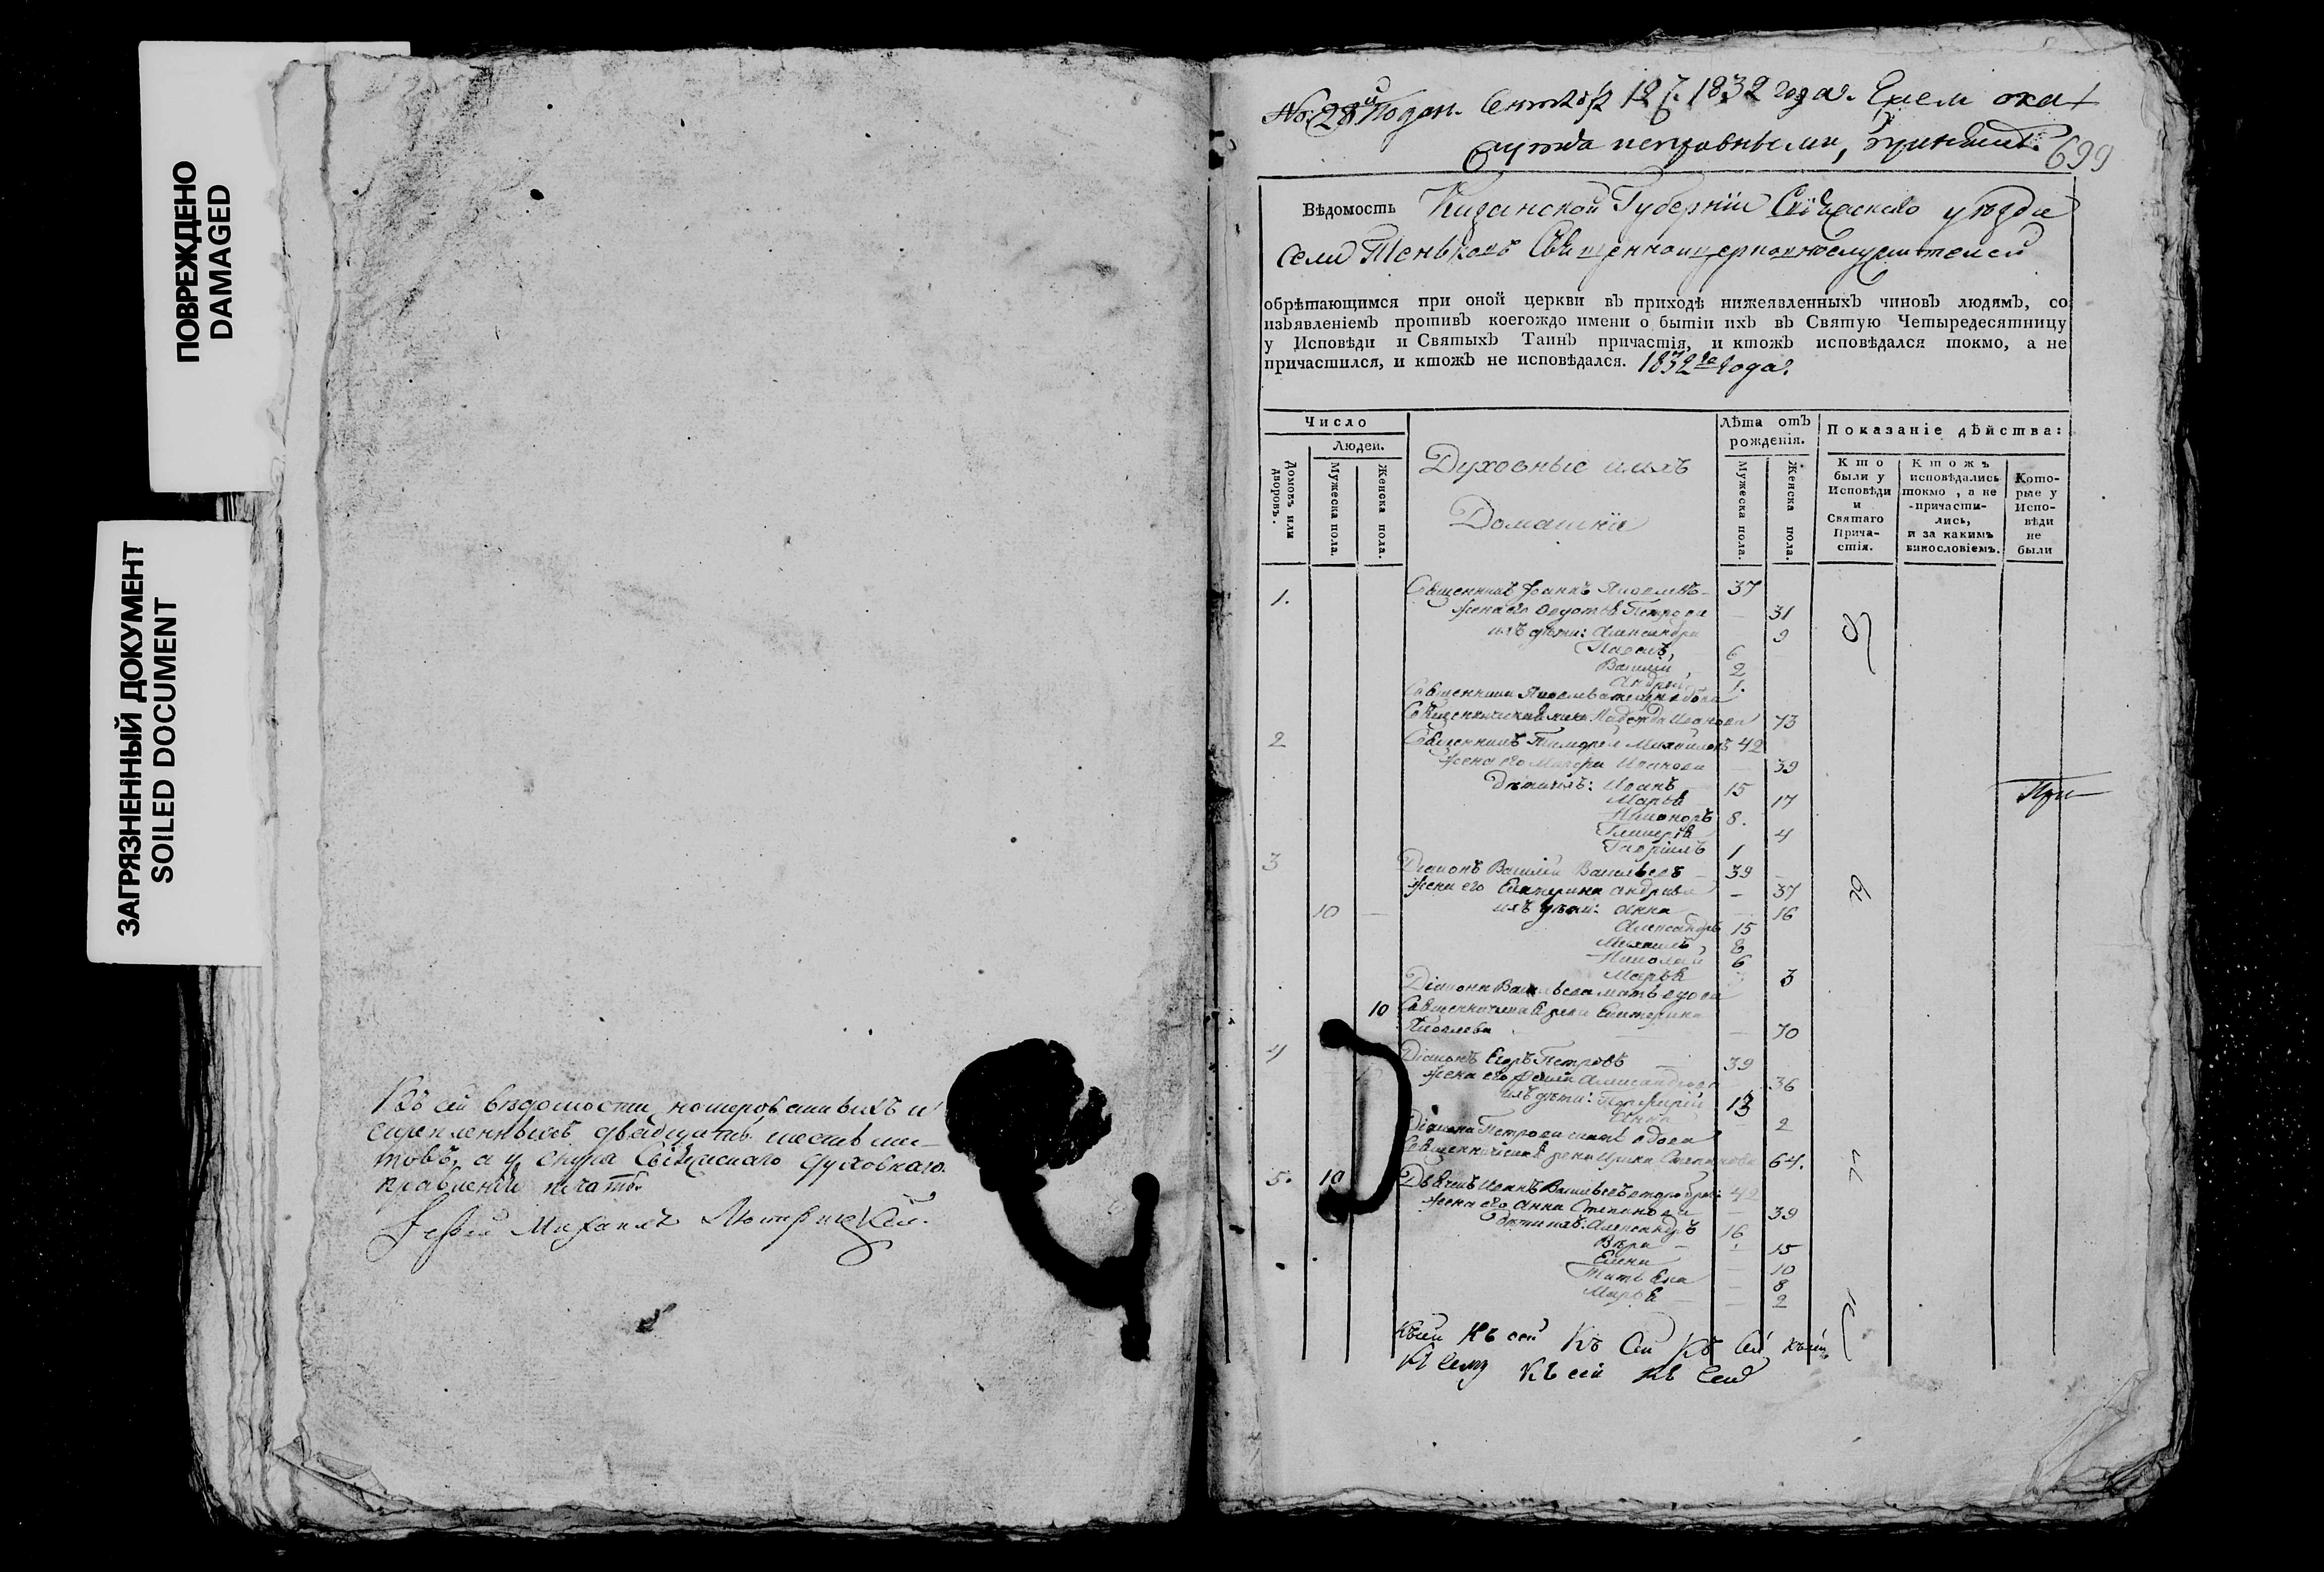 ПОВРЕЖДЕНО
DAMAGED
ЗАГРЯЗНЕННЫЙ ДОКУМЕНТ
SOILED DOCUMENT
Къ сей вѣдомости номеров
скрепленныхъ двадцать шесть лис-
товъ, а у снура Свіяжскаго духовнаго
правленія печать.
Іерей Михаилъ
№ 28й Подан. Сентябр 12 1832 года.
исправными,
699
Вѣдомость Казанской Губерніи Свіяжскаго уѣзда
села Теньковъ Священноцерковнослужителей
обрѣтающимся при оной церкви въ приходѣ нижеявленныхъ чиновъ людямъ, со
изъявленіемъ противъ коегождо имени о бытіи ихъ въ Святую Четыредесятницу
у Исповѣди и Святыхъ Таинъ причастія, и ктожъ исповѣдался токмо, а не
причастился, и ктожъ не исповѣдался. 1832го Года.
Число
Людей.
Домовъ или дворовъ.
Мужеска пола.
Женска пола.
Духовные и ихъ
Домашніе
Лѣта отъ рожденія.
Мужеска пола.
Женска пола.
Показаніе дѣйства:
Кто были у Исповѣди и Святаго Прича-стія.
Ктожъ исповѣдались токмо, а не причасти-лись, и за какимъ винословіемъ.
Кото-рые у Испо-вѣди не были
1. Священникъ Іоаннъ Яковлевъ 37
жена его Петрова 31
ихъ дѣти: Александра 9
Павелъ, 6
Василій 2
Андрей 1.
Священника Яковлева мать вдова
Священническая жена Надежда Иванова 73
2 Священникъ Тимофей Михайловъ 42
жена его Иванова 39
Дѣти ихъ: Иванъ 15
Марья 17
Никаноръ 8.
Гликерія 4
Гавріилъ 1
3 Діаконъ Василій Васильевъ 39
жена его Екатерина Андреева 37
10 ихъ дѣти: Анна 16
Александръ 15
Михаилъ, 8
Николай 6
Марья 3
Діакона Васильева мать вдова
10 Священническая жена Екатерина
Яковлева 70
4 Діаконъ Егоръ Петровъ 39
жена его Александрова 36
ихъ дѣти: Порфирій 13
Анна 2
Діакона Петрова мать вдова
Священническая жена Ирина Степанова 64.
5. 10 Дьячекъ Иванъ Васильевъ 42
жена его Анна Степанова 39
Дѣти ихъ: Александръ 16
Вѣра 15
Елена 10
Татьяна 8
Марья 2
Къ сей Къ сей Къ Сей Къ Сей Къ сей
Къ сему Къ сей Къ Сей